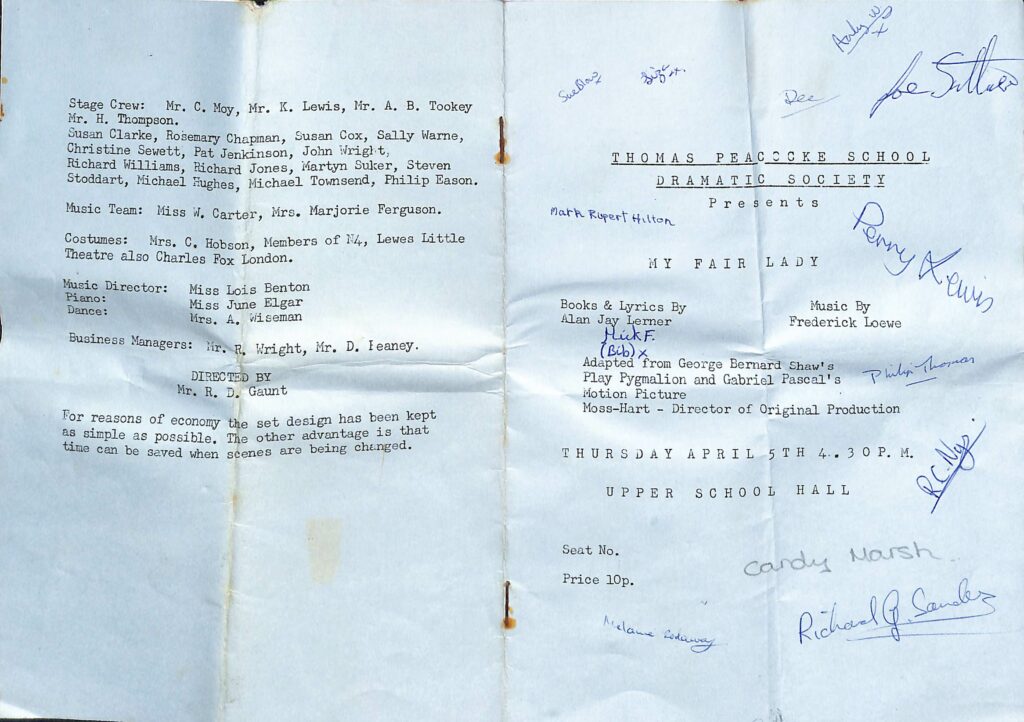 Stage Crew: Mr. C. Moy, Mr. K. Lewis, Mr. A. B. Tookey
Mr. H. Thompson.
Susan Clarke, Rosemary Chapman, Susan Cox, Sally Warne,
Christine Sewett, Pat Jenkinson, John Wright,
Richard Williams, Richard Jones, Martyn Suker, Steven
Stoddart, Michael Hughes, Michael Townsend, Philip Eason.
Music Team: Miss W. Carter, Mrs. Marjorie Ferguson.
Costumes: Mrs. C. Hobson, Members of N4, Lewes Little
Theatre also Charles Fox London.
Music Director: Miss Lois Benton
Piano: Miss June Elgar
Dance: Mrs. A. Wiseman
Business Managers: Mr. R. Wright, Mr. D. Feaney.
DIRECTED BY
Mr. R. D. Gaunt
For reasons of economy the set design has been kept
as simple as possible. The other advantage is that
time can be saved when scenes are being changed.
Andy W x
Sue
Dee
Joe
THOMAS PEACOCKE SCHOOL
DRAMATIC SOCIETY
Presents
Mark Rupert Hilton
Penny Lewis
MY FAIR LADY
Books & Lyrics By
Alan Jay Lerner
Music By
Frederick Loewe
Mick F.
(Bib) x
Adapted from George Bernard Shaw's
Play Pygmalion and Gabriel Pascal's
Motion Picture
Moss-Hart - Director of Original Production
Philip Thomas
THURSDAY APRIL 5TH 4.30P.M.
R.C.
UPPER SCHOOL HALL
Seat No.
Price 10p.
Candy Marsh
Richard G. Sander
Melanie